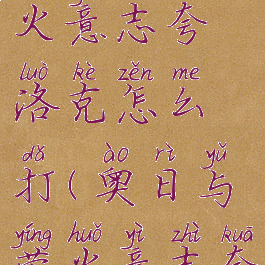 火意志夸
luò kè zěn me
洛克怎么
dǎ ào rì yǔ
打(奥日与
yíng huǒ yì zhì kuā
萤火意志夸